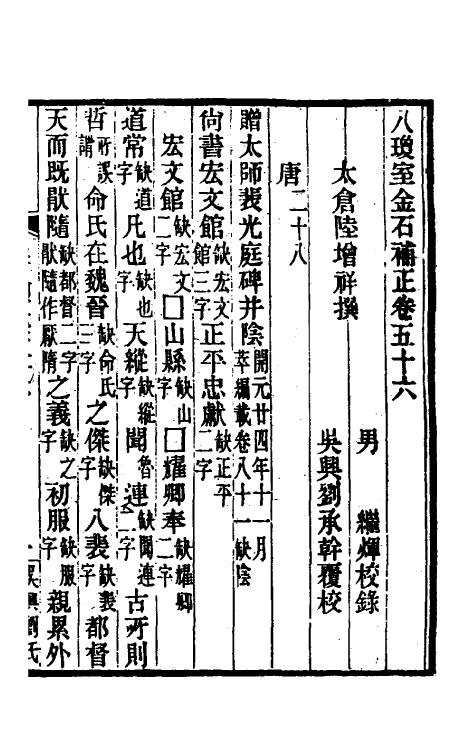 八瓊室金石補正卷五十六
太倉陸增祥撰
男 繼煇校錄
吳興劉承幹覆校
唐二十八
贈太師裴光庭碑并陰 開元廿四年十一月萃編載卷八十一缺陰
尙書宏文館缺宏文館三字正平忠獻缺正平二字
宏文館缺宏文二字囗山縣缺山字囗耀卿奉缺耀卿二字
道常缺道字凡也缺也字天縱缺縱字聞魯連缺聞連二字古所則
哲所誤謂命氏在魏晉缺命氏三字之傑缺傑字八裴缺裴字都督
天而旣猒隨缺都督二字猒隨作厭隋之義缺之字初服缺服字親累外
吳興劉氏